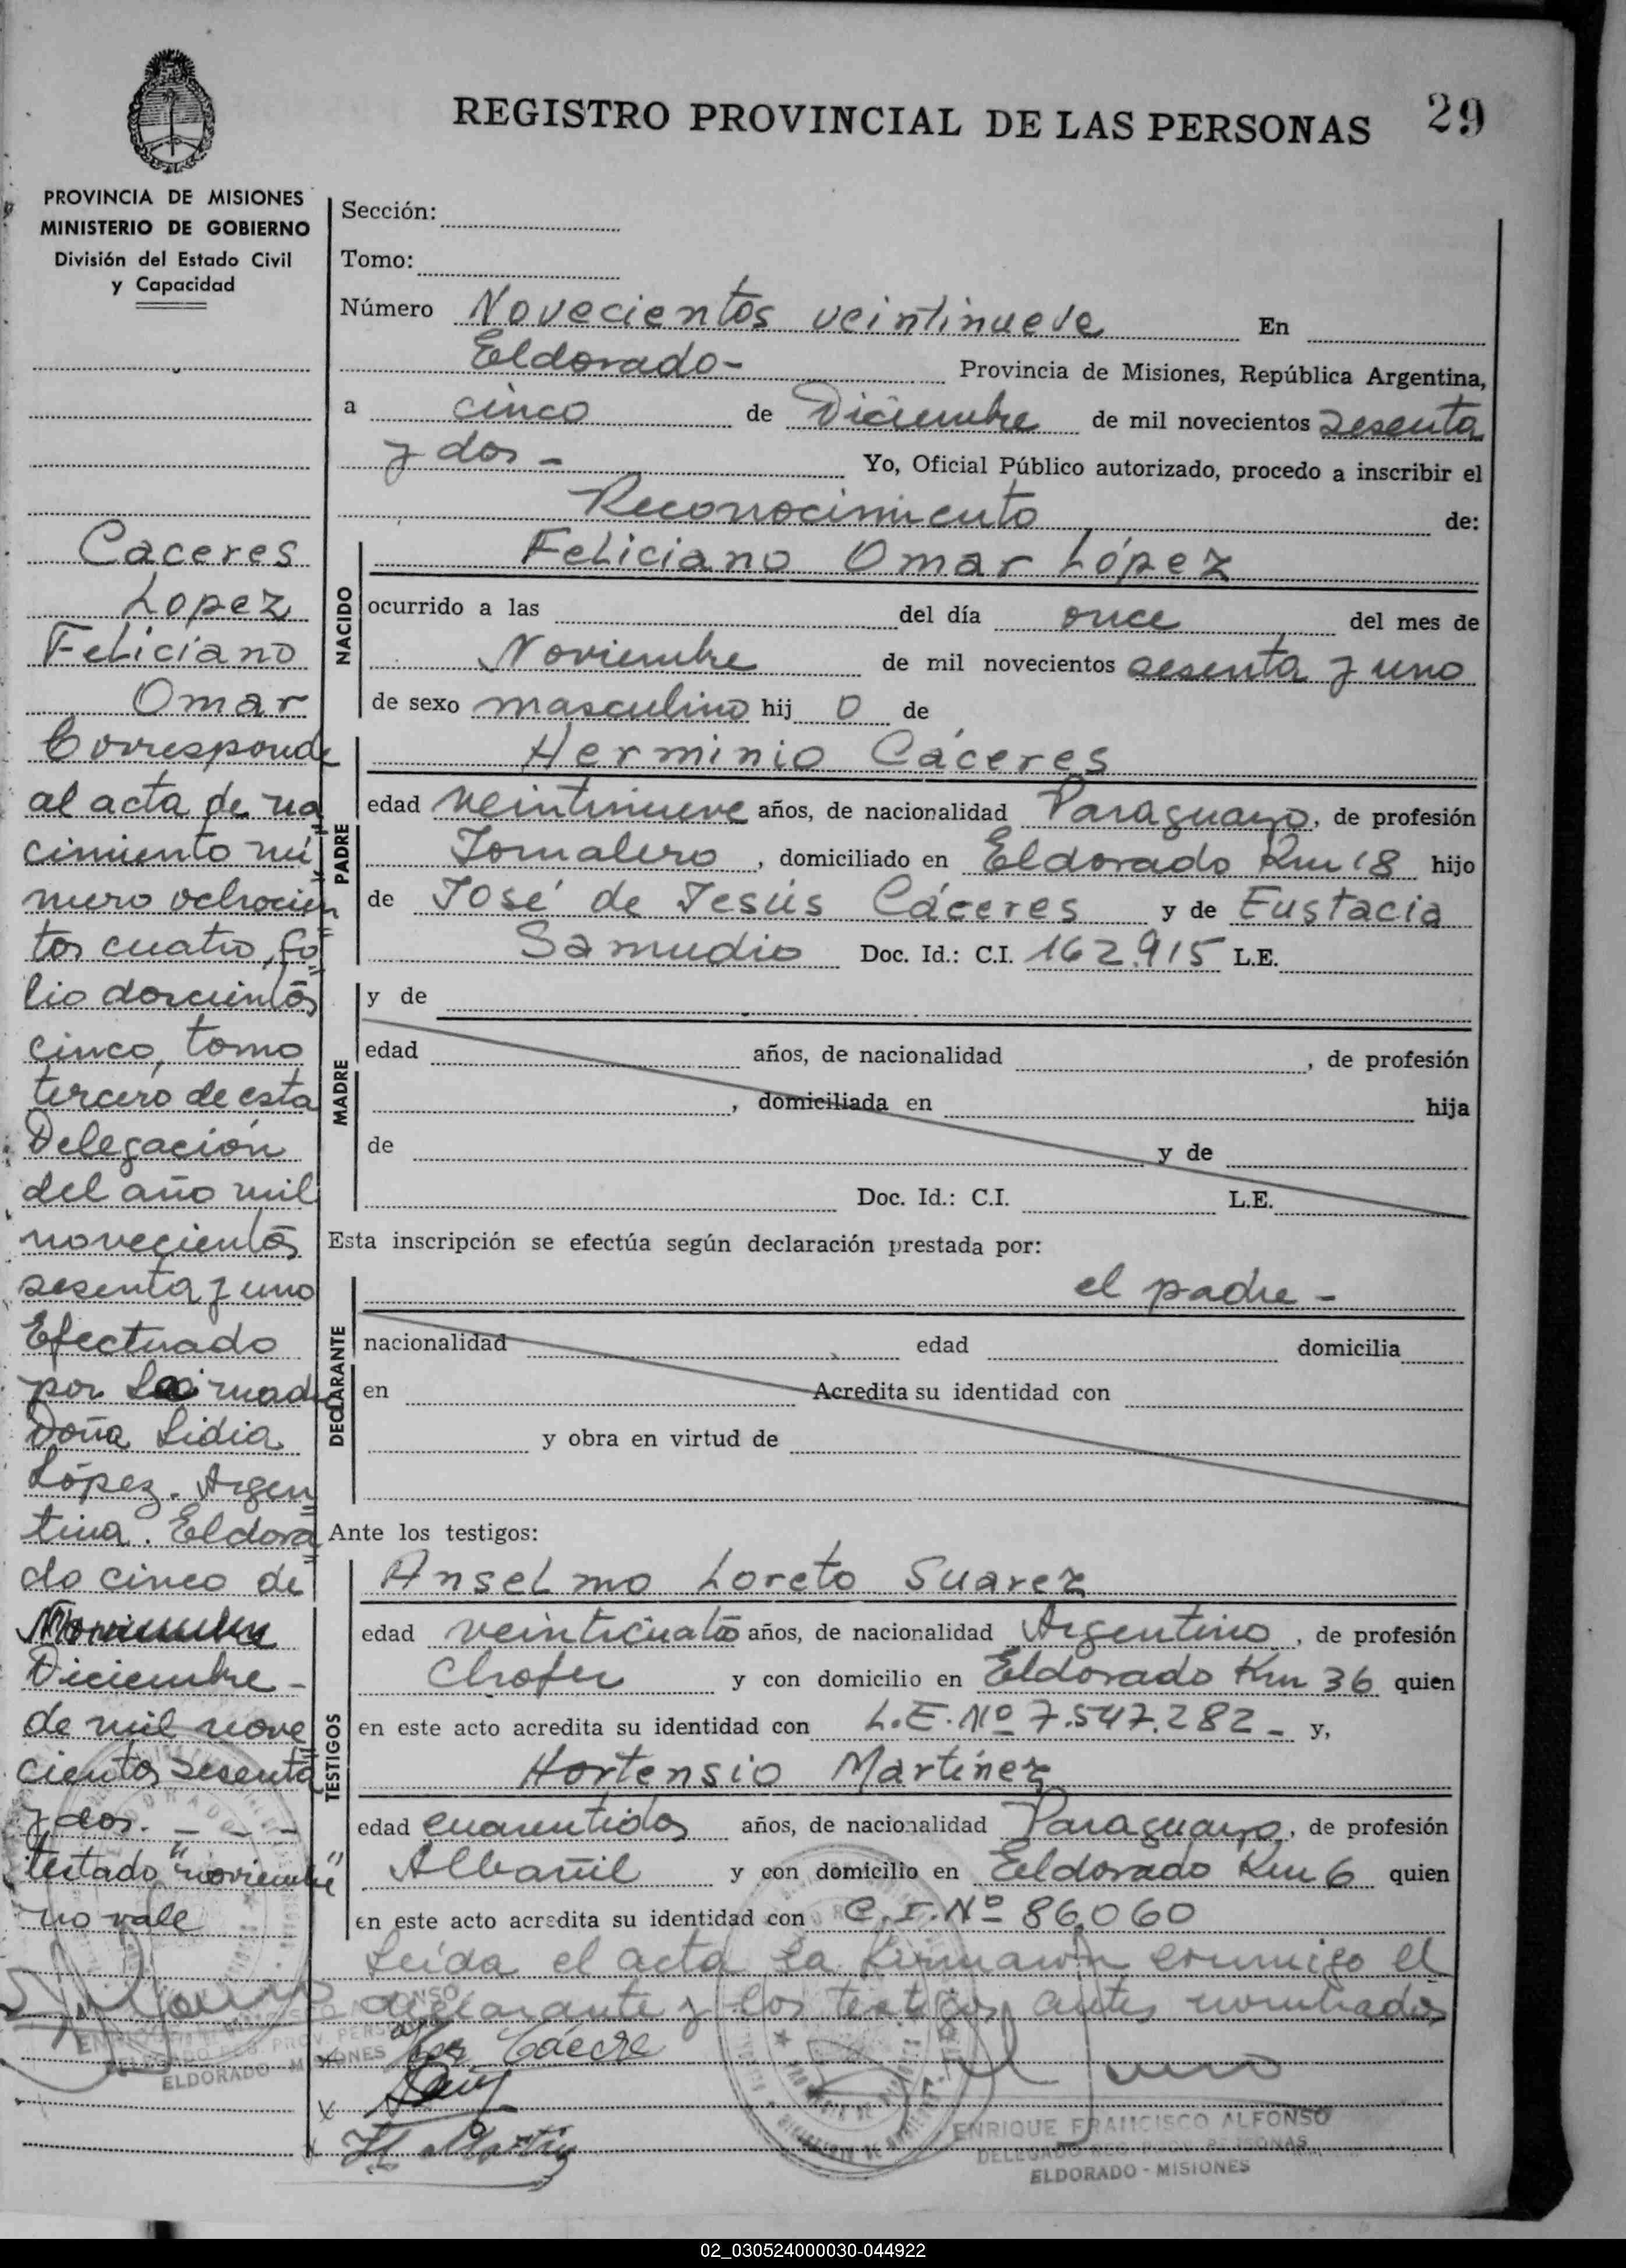 REGISTRO PROVINCIAL DE LAS PERSONAS 29
PROVINCIA DE MISIONES
MINISTERIO DE GOBIERNO
División del Estado Civil
y Capacidad
Caceres
Lopez
Feliciano
Omar
Corresponde
al acta de na
cimiento nú
mero ochocien
tos cuatro, fo
lio doscientos
cinco, tomo
tercero de esta
Delegación
del año mil
novecientos
sesenta y uno
Efectuado
por la madre
Doña Lidia
López. Argen
tina. Eldora
do cinco de
Noviembre
Diciembre -
de mil nove
cientos sesenta
y dos. - - -
testado "noviembre"
no vale
Sección:
Tomo:
Número Novecientos veintinueve En
Eldorado- Provincia de Misiones, República Argentina,
a cinco de Diciembre de mil novecientos sesenta
y dos - Yo, Oficial Público autorizado, procedo a inscribir el
Reconocimiento de:
NACIDO
Feliciano Omar López
ocurrido a las del día once del mes de
Noviembre de mil novecientos sesenta y uno
de sexo masculino hij o de
PADRE
Herminio Cáceres
edad veintinueve años, de nacionalidad Paraguayo, de profesión
Jornalero, domiciliado en Eldorado Km 18 hijo
de José de Jesús Cáceres y de Eustacia
Samudio Doc. Id.: C.I. 162.915 L.E.
MADRE
y de
edad años, de nacionalidad , de profesión
, domiciliada en hija
de y de
Doc. Id.: C.I. L.E.
Esta inscripción se efectúa según declaración prestada por:
DECLARANTE
el padre -
nacionalidad edad domicilia
en Acredita su identidad con
y obra en virtud de
Ante los testigos:
TESTIGOS
Anselmo Loreto Suarez
edad veinticuatro años, de nacionalidad Argentino, de profesión
Chofer y con domicilio en Eldorado Km 36 quien
en este acto acredita su identidad con L.E. Nº 7.547.282 - y,
Hortensio Martínez
edad cuarentidos años, de nacionalidad Paraguayo, de profesión
Albañil y con domicilio en Eldorado Km 6 quien
en este acto acredita su identidad con C.I. Nº 86.060
Leída el acta la firmaron conmigo el
declarante y los testigos antes nombrados
ENRIQUE FRANCISCO ALFONSO
DELEGADO REG. PROV. PERSONAS
ELDORADO - MISIONES
ENRIQUE FRANCISCO ALFONSO
DELEGADO REG. PROV. PERSONAS
ELDORADO - MISIONES
02_030524000030-044922